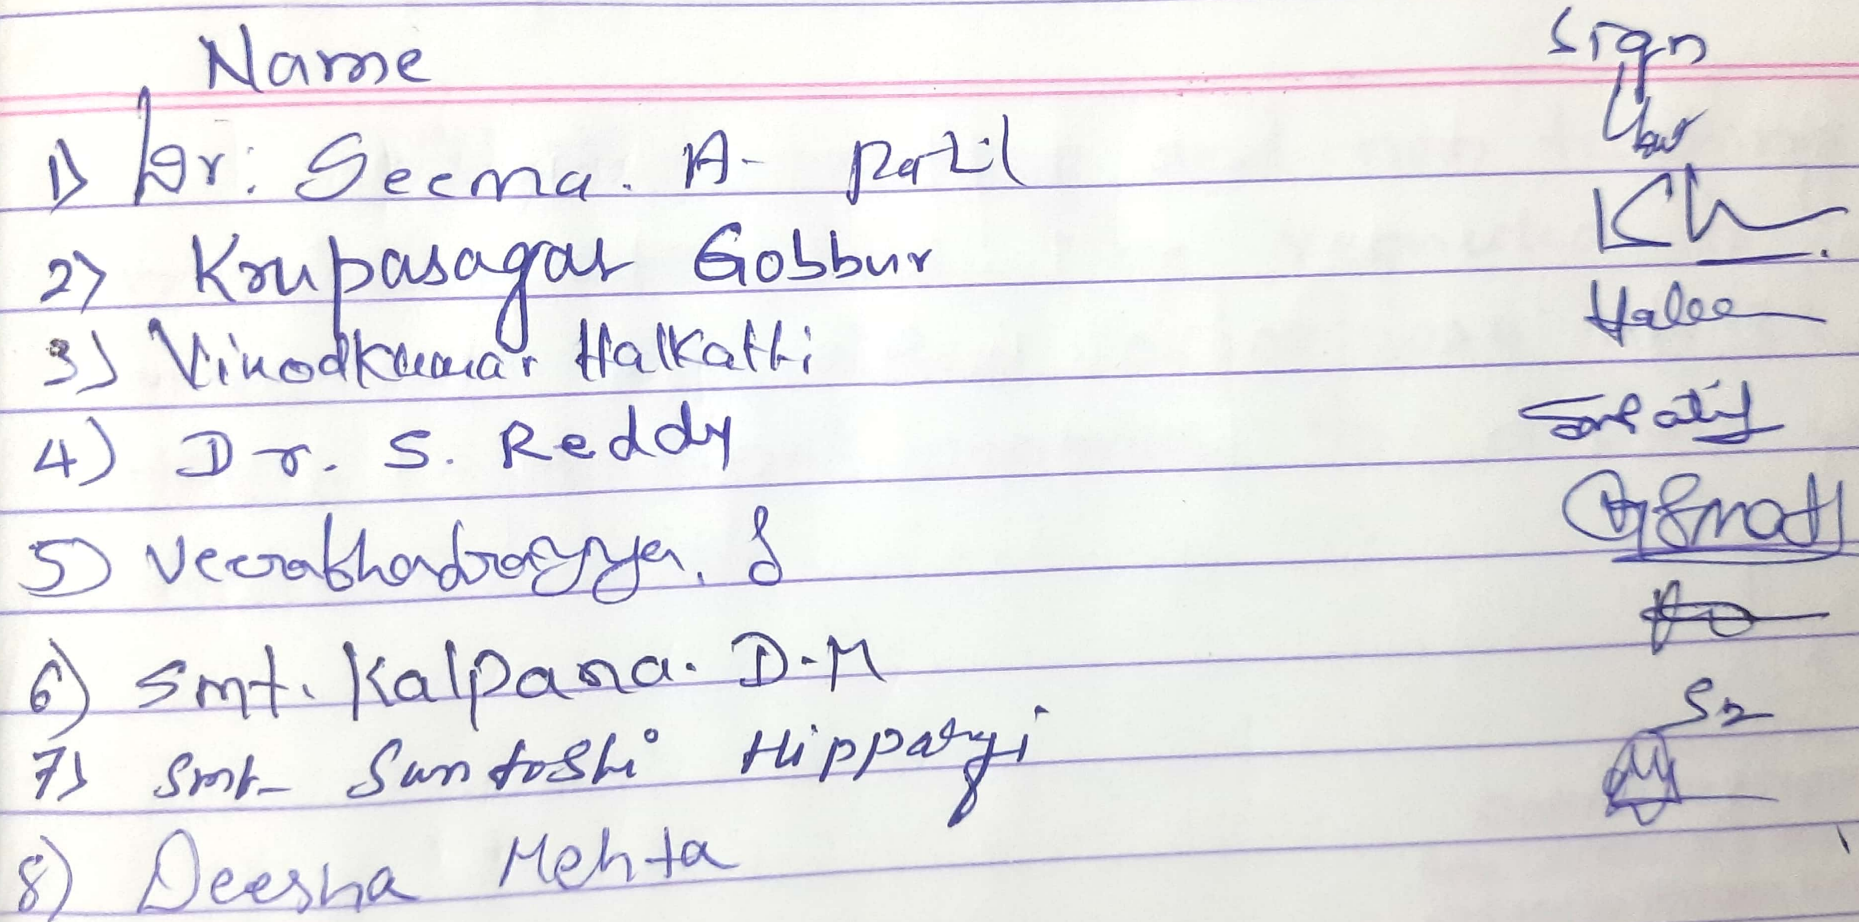 Name Sign
1) Dr. Seema. A. Patil
2) Krupasagar Gobbur
3) Vinodkumar Halkatti
4) Dr. S. Reddy
5) Veerabhadrayya. S
6) Smt. Kalpana. D.M
7) Smt. Santoshi Hippargi
8) Deesha Mehta